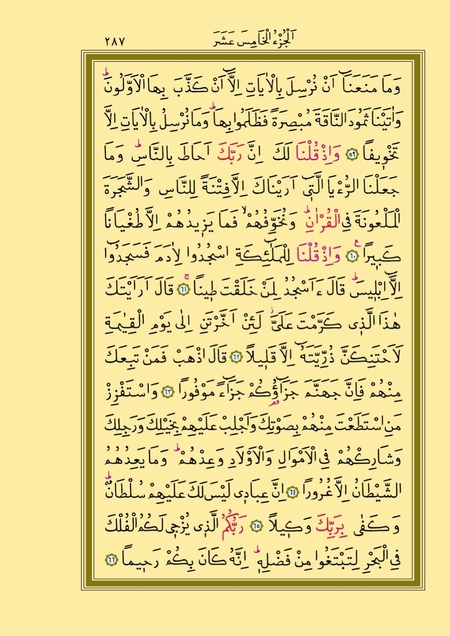 اَلْجُزْءُ الْخَامِسَ عَشَرَ ٢٨٧
وَمَا مَنَعَنَٓا اَنْ نُرْسِلَ بِالْاٰيَاتِ اِلَّٓا اَنْ كَذَّبَ بِهَا الْاَوَّلُونَۜ
وَاٰتَيْنَا ثَمُودَ النَّاقَةَ مُبْصِرَةً فَظَلَمُوا بِهَاۜ وَمَا نُرْسِلُ بِالْاٰيَاتِ اِلَّا
تَخْوٖيفًا ﴿٥٩﴾ وَاِذْ قُلْنَا لَكَ اِنَّ رَبَّكَ اَحَاطَ بِالنَّاسِۜ وَمَا
جَعَلْنَا الرُّءْيَا الَّتٖٓي اَرَيْنَاكَ اِلَّا فِتْنَةً لِلنَّاسِ وَالشَّجَرَةَ
الْمَلْعُونَةَ فِي الْقُرْاٰنِۜ وَنُخَوِّفُهُمْۙ فَمَا يَزٖيدُهُمْ اِلَّا طُغْيَانًا
كَبٖيرًا ﴿٦٠﴾ وَاِذْ قُلْنَا لِلْمَلٰٓئِكَةِ اسْجُدُوا لِاٰدَمَ فَسَجَدُٓوا
اِلَّٓا اِبْلٖيسَۜ قَالَ ءَاَسْجُدُ لِمَنْ خَلَقْتَ طٖينًا ﴿٦١﴾ قَالَ اَرَاَيْتَكَ
هٰذَا الَّذٖي كَرَّمْتَ عَلَيَّۘ لَئِنْ اَخَّرْتَنِ اِلٰى يَوْمِ الْقِيٰمَةِ
لَاَحْتَنِكَنَّ ذُرِّيَّتَهُٓ اِلَّا قَلٖيلًا ﴿٦٢﴾ قَالَ اذْهَبْ فَمَنْ تَبِعَكَ
مِنْهُمْ فَاِنَّ جَهَنَّمَ جَزَٓاؤُ۬كُمْ جَزَٓاءً مَوْفُورًا ﴿٦٣﴾ وَاسْتَفْزِزْ
مَنِ اسْتَطَعْتَ مِنْهُمْ بِصَوْتِكَ وَاَجْلِبْ عَلَيْهِمْ بِخَيْلِكَ وَرَجِلِكَ
وَشَارِكْهُمْ فِي الْاَمْوَالِ وَالْاَوْلَادِ وَعِدْهُمْۜ وَمَا يَعِدُهُمُ
الشَّيْطَانُ اِلَّا غُرُورًا ﴿٦٤﴾ اِنَّ عِبَادٖي لَيْسَ لَكَ عَلَيْهِمْ سُلْطَانٌۜ
وَكَفٰى بِرَبِّكَ وَكٖيلًا ﴿٦٥﴾ رَبُّكُمُ الَّذٖي يُزْجٖي لَكُمُ الْفُلْكَ
فِي الْبَحْرِ لِتَبْتَغُوا مِنْ فَضْلِهٖۜ اِنَّهُ كَانَ بِكُمْ رَحٖيمًا ﴿٦٦﴾